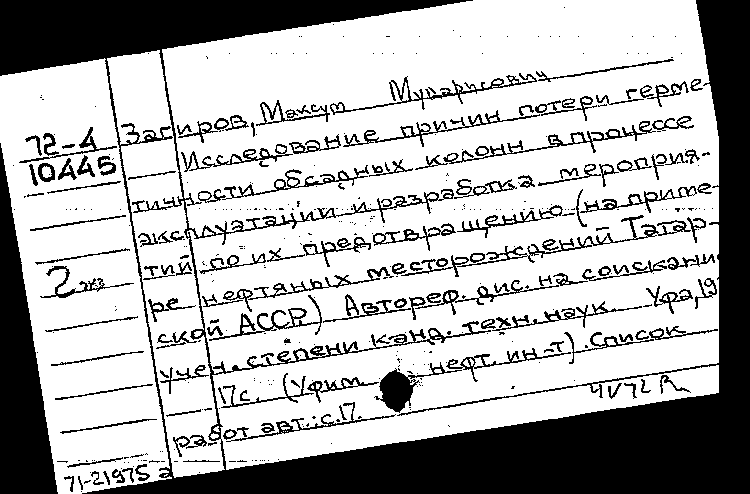 72-4
10445
Загиров, Максут Мударисович
Исследование причин потери герме-
тичности обсадных колонн в процессе
эксплуатации и разработка мероприя-
тий по их предотвращению (на приме-
2 экз
ре нефтяных месторождений Татар-
ской АССР.) Автореф. дис. на соискани
учен. степени канд. техн. наук. Уфа, 19
17с. (Уфим. нефт. ин-т). Список
работ авт.: с.17.
71-21975 а